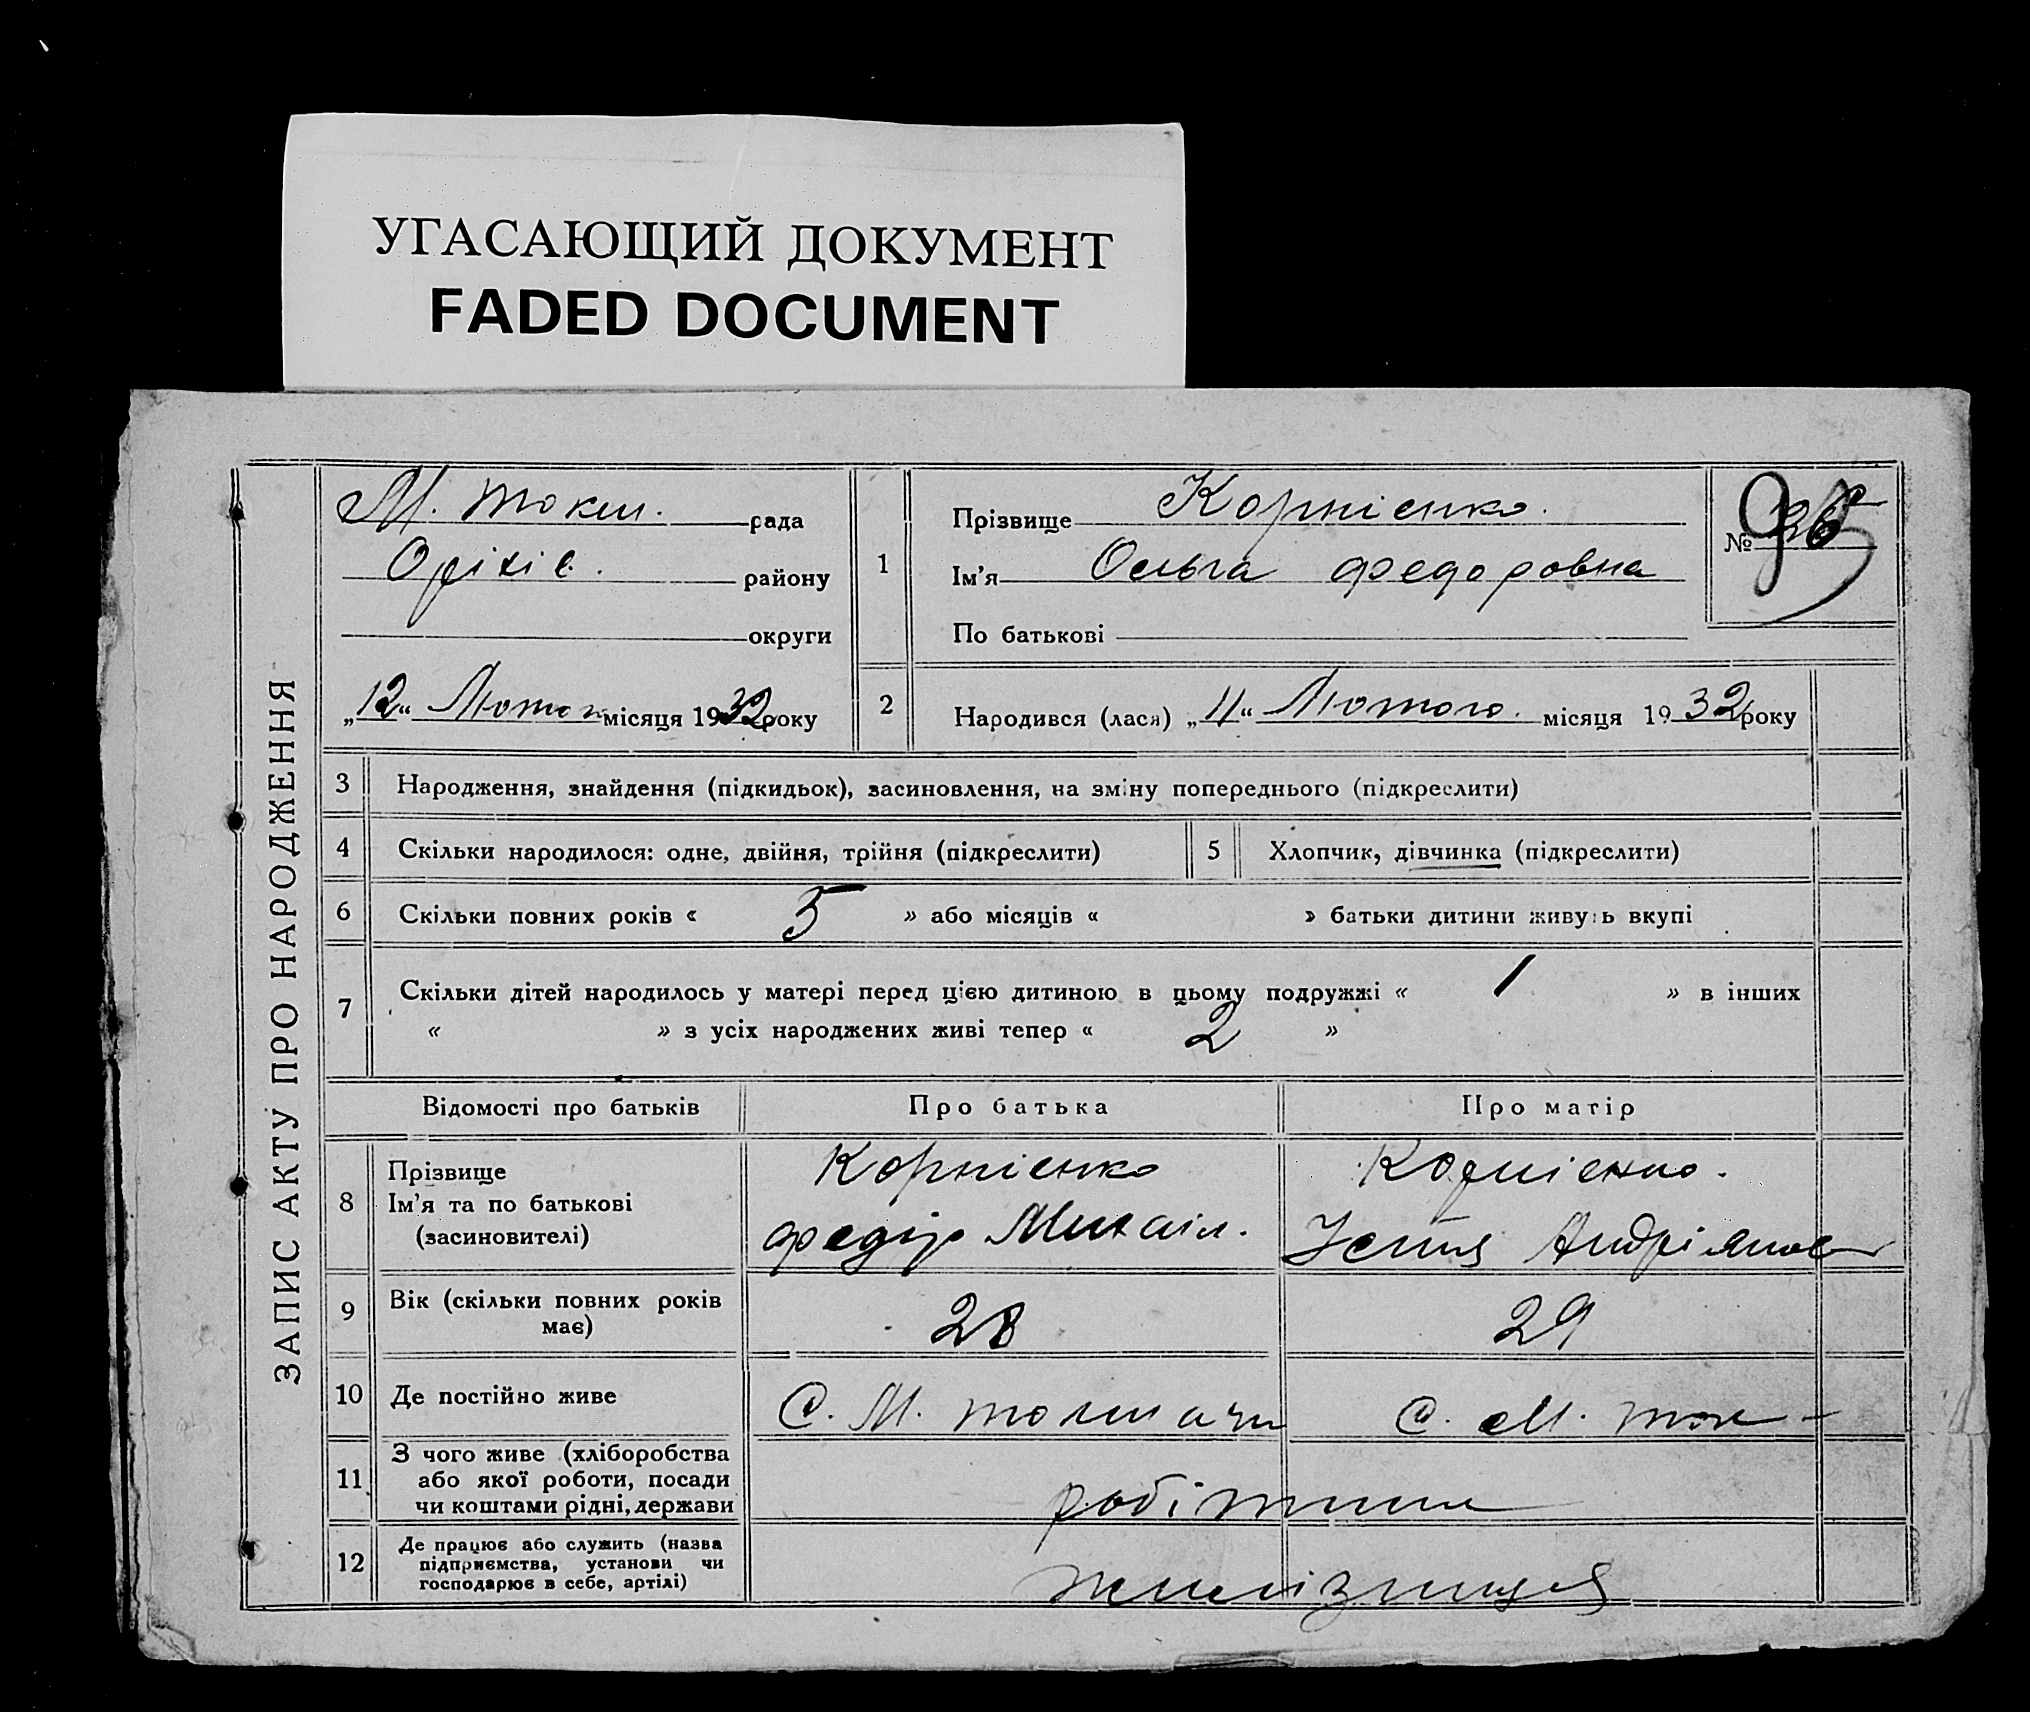 УГАСАЮЩИЙ ДОКУМЕНТ
FADED DOCUMENT
ЗАПИС АКТУ ПРО НАРОДЖЕННЯ
М. Токм. рада
Оріхів. району
округи
„12“ Лютого місяця 1932 року
1
Прізвище Корнієнко.
Ім'я Ольга Федоровна
По батькові
№ 36
95
2 Народився (лася) „11“ Лютого. місяця 1932 року
3 Народження, знайдення (підкидьок), засиновлення, на зміну попереднього (підкреслити)
4 Скільки народилося: одне, двійня, трійня (підкреслити)
5 Хлопчик, дівчинка (підкреслити)
6 Скільки повних років « 5 » або місяців « » батьки дитини живуть вкупі
7 Скільки дітей народилось у матері перед цією дитиною в цьому подружжі « 1 » в інших
« » з усіх народжених живі тепер « 2 »
Відомості про батьків Про батька Про матір
8 Прізвище
Ім'я та по батькові
(засиновителі)
Корнієнко
Федір Михаіл.
Корнієнко.
Устя Андріянов
9 Вік (скільки повних років
має)
28
29
10 Де постійно живе
С. М. Токмачк
С. М. Ток-
11 З чого живе (хліборобства
або якої роботи, посади
чи коштами рідні, держави
робітник
12 Де працює або служить (назва
підприємства, установи чи
господарює в себе, артілі)